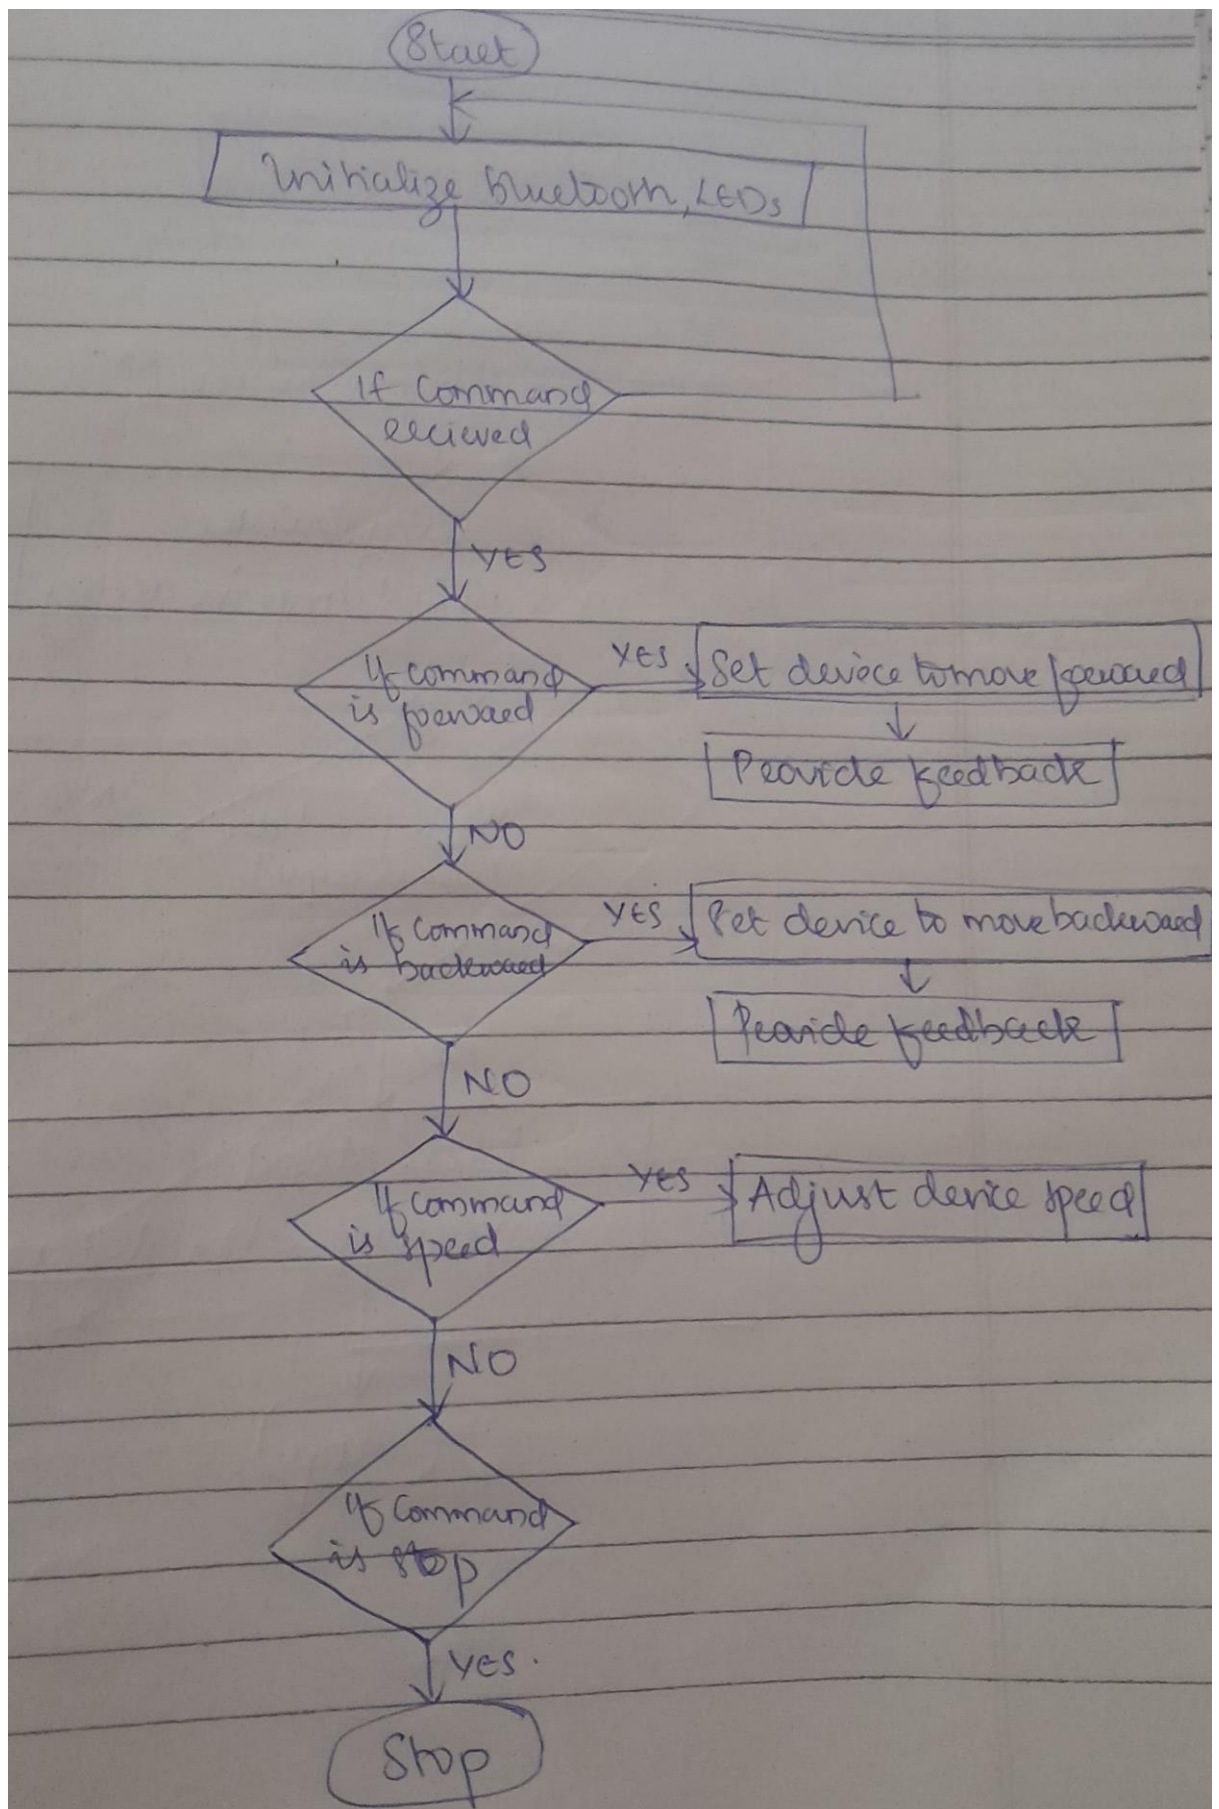 Start
Initialize bluetooth, LEDs
If Command
recieved
YES
If command
is forward
YES
Set device to move forward
Provide feedback
NO
If Command
is backward
YES
Set device to move backward
Provide feedback
NO
If Command
is speed
YES
Adjust device speed
NO
If Command
is stop
YES.
Stop